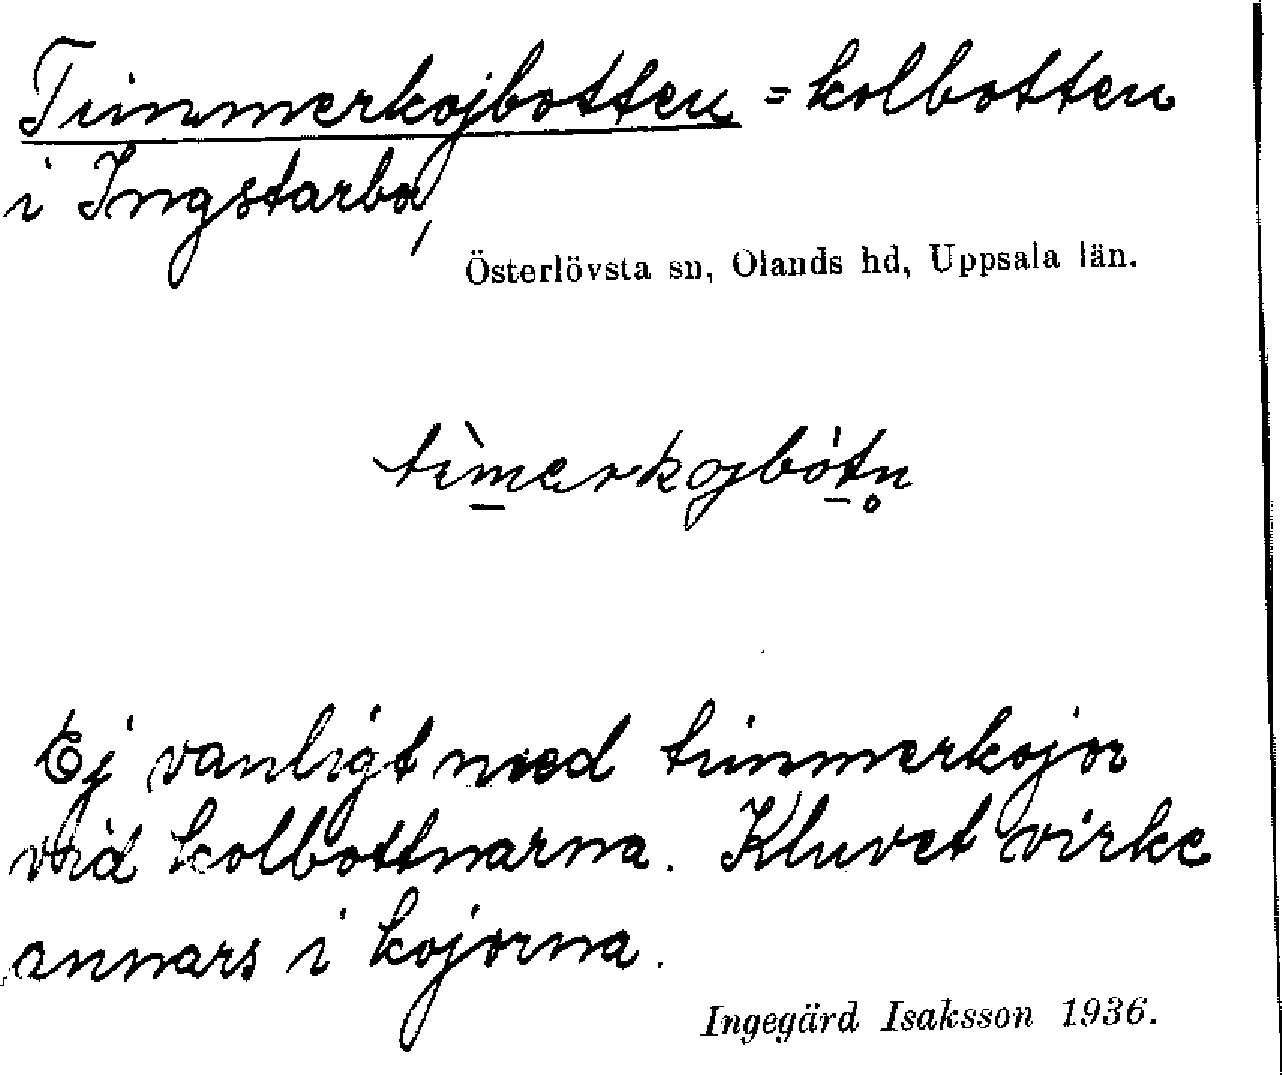 Timmerkojbotten = kolbotten
i Ingstarbo,
Österlövsta sn, Olands hd, Uppsala län.
tìmerkojbótn̥
Ej vanligt med timmerkojor
vid kolbottnarna. Kluvet virke
annars i kojorna.
Ingegärd Isaksson 1936.